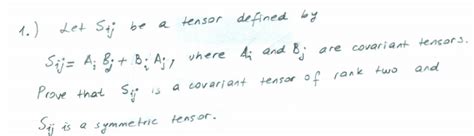 1.) Let Sij be a tensor defined by
Sij = Ai Bj + Bi Aj, where Ai and Bj are covariant tensors.
Prove that Sij is a covariant tensor of rank two and
Sij is a symmetric tensor.